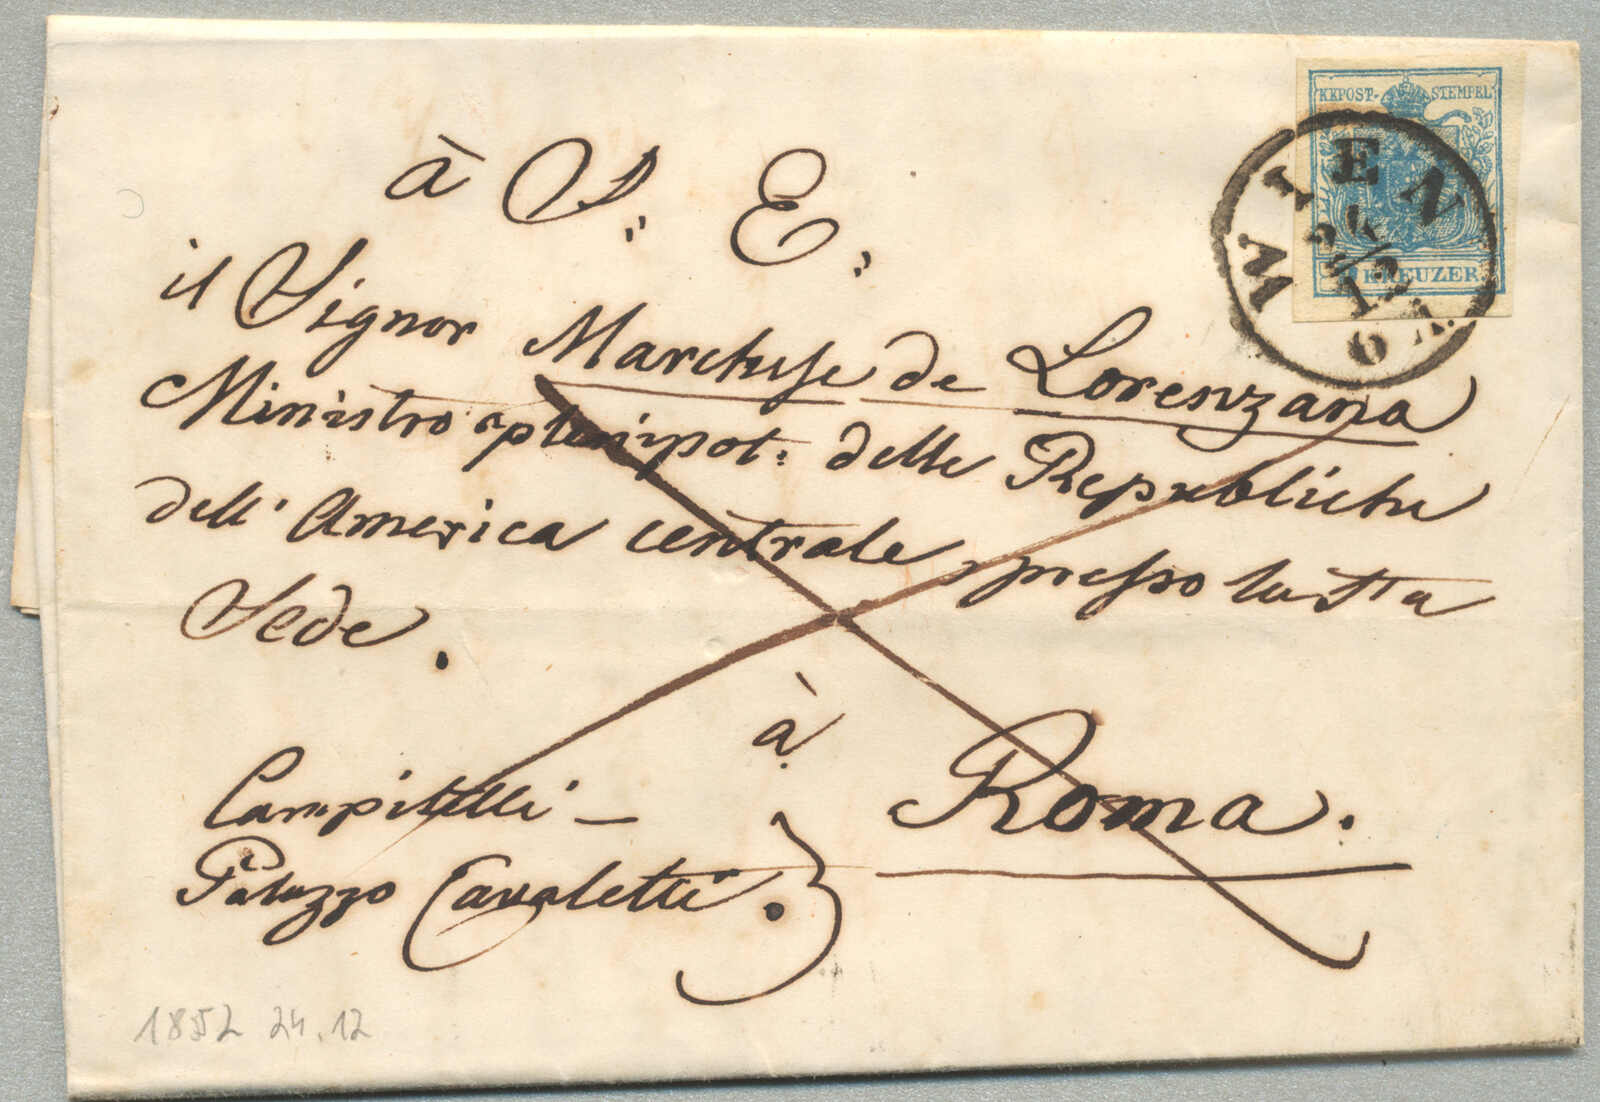 KKPOST-STEMPEL
9 KREUZER
WIEN
24/12
6 A.
à S. E.
il Signor Marchese de Lorenzana
Ministro plenipot. delle Repubbliche
dell' America centrale presso la Sta
Sede.
à
Roma.
Campitelli –
Palazzo Cavaletti.
1852 24.12